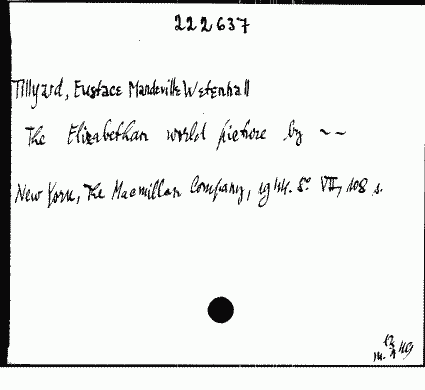 222637
Tillyard, Eustace Mandeville Wetenhall
The Elizabethan world picture by ~~
New York, The Macmillan Company, 1944. 8° VII, 108 s.